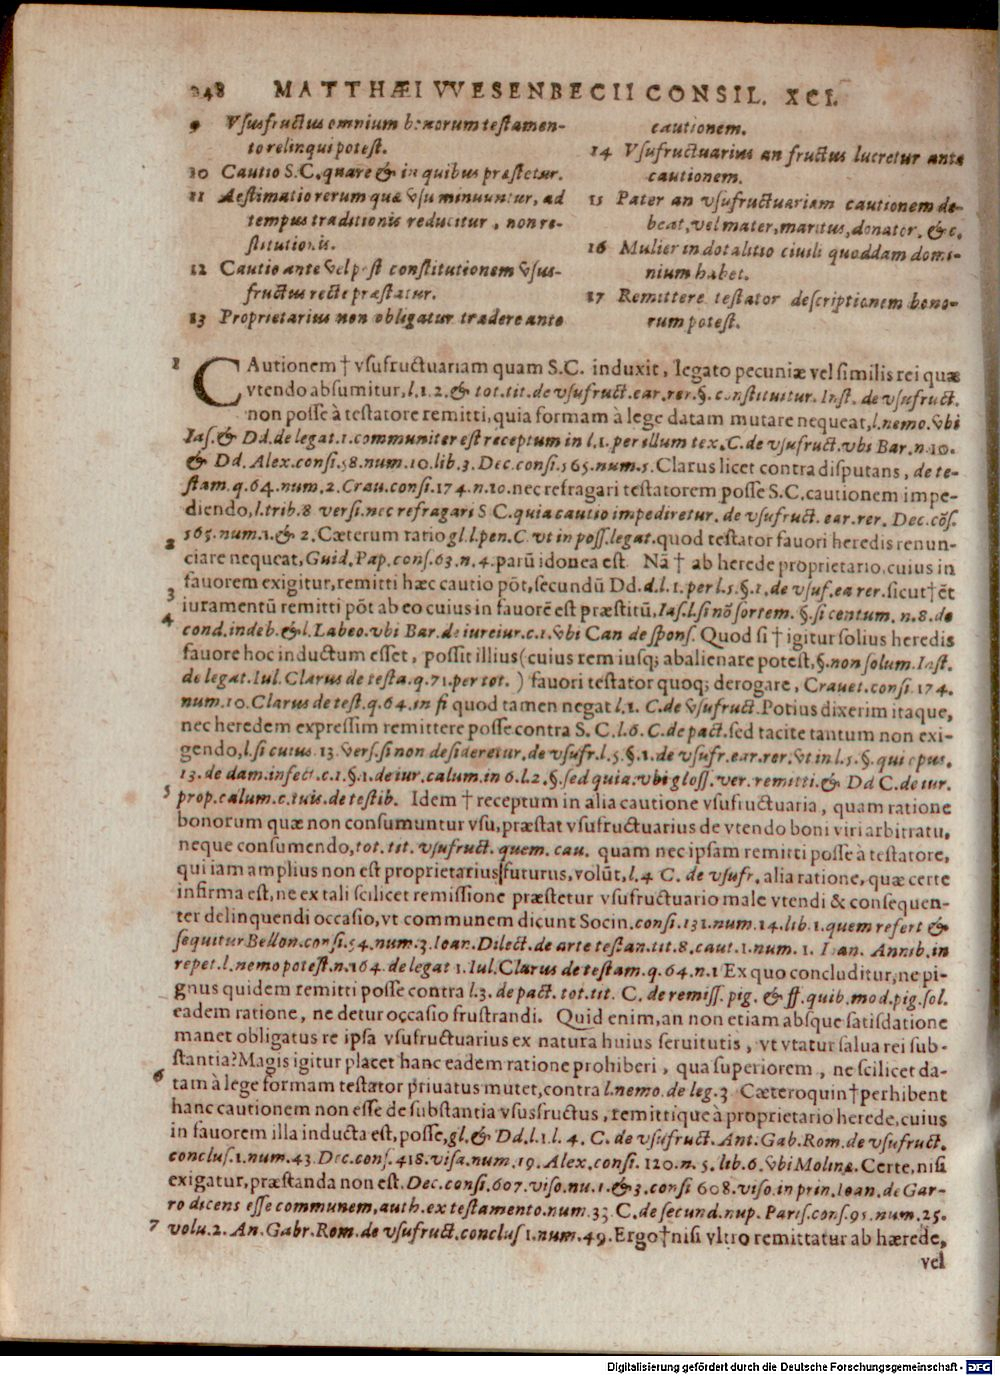 248 MATTHÆI VVESENBECII CONSIL. XCI.
9 Vsusfructus omnium bonorum testamen-
to relinqui potest.
10 Cautio S.C. quare & in quibus præstetur.
11 Aestimatio rerum quæ vsu minuuntur, ad
tempus traditionis reducitur, non re-
stitutionis.
12 Cautio ante vel post constitutionem vsus-
fructus recte præstatur.
13 Proprietarius non obligatur tradere ante
cautionem.
14 Vsufructuarius an fructus lucretur ante
cautionem.
15 Pater an vsufructuariam cautionem de-
beat, vel mater, maritus, donator. &c.
16 Mulier in dotalitio ciuili quoddam domi-
nium habet.
17 Remittere testator descriptionem bono-
rum potest.
1 CAutionem † vsufructuariam quam S.C. induxit, legato pecuniæ vel similis rei quæ
vtendo absumitur, l.1.2. & tot. tit. de vsufruct. ear. rer. §. constituitur. Inst. de vsufruct.
non posse à testatore remitti, quia formam à lege datam mutare nequeat, l. nemo. vbi
Ias. & Dd. de legat.1. communiter est receptum in l.1. per illum tex. C. de vsufruct. vbi Bar. n.10.
& Dd. Alex. consi.58. num.10. lib.3. Dec. consi.565. num.5. Clarus licet contra disputans, de te-
stam. q.64. num.2. Crau. consi.174. n.10. nec refragari testatorem posse S.C. cautionem impe-
diendo, l. trib.8 versi. nec refragari S C. quia cautio impediretur. de vsufruct. ear. rer. Dec. cõs.
565. num.1. & 2. Cæterum ratio gl. l. pen. C. vt in poss. legat. quod testator fauori heredis renun-
2 ciare nequeat, Guid. Pap. cons.63. n.4. parũ idonea est. Nã † ab herede proprietario, cuius in
fauorem exigitur, remitti hæc cautio põt, secundũ Dd. d. l.1. per l.5. §.1. de vsuf. ea rer. sicut † ẽt
3 iuramentũ remitti põt ab eo cuius in fauorẽ est præstitũ, Ias. l. si nõ sortem. §. si centum. n.8. de
4 cond. indeb. & l. Labeo. vbi Bar. de iureiur. c.1. vbi Can de spons. Quod si † igitur solius heredis
fauore hoc inductum esset, possit illius (cuius rem iusq; abalienare potest, §. non solum. Inst.
de legat. Iul. Clarus de testa. q.71. per tot.) fauori testator quoq; derogare, Crauet. consi.174.
num.10. Clarus de test. q.64. in fi quod tamen negat l.1. C. de vsufruct. Potius dixerim itaque,
nec heredem expressim remittere posse contra S. C. l.6. C. de pact. sed tacite tantum non exi-
gendo, l. si cuius 13. vers. si non desideretur. de vsufr. l.5. §.1. de vsufr. ear. rer. vt in l.5. §. qui opus.
13. de dam. infect. c.1. §.1. de iur. calum. in 6. l.2. §. sed quia. vbi gloss. ver. remitti. & Dd C. de iur.
5 prop. calum. c. tuis. de testib. Idem † receptum in alia cautione vsufructuaria, quam ratione
bonorum quæ non consumuntur vsu, præstat vsufructuarius de vtendo boni viri arbitratu,
neque consumendo, tot. tit. vsufruct. quem. cau. quam nec ipsam remitti posse à testatore,
qui iam amplius non est proprietarius futurus, volũt, l.4 C. de vsufr. alia ratione, quæ certe
infirma est, ne ex tali scilicet remissione præstetur vsufructuario male vtendi & consequen-
ter delinquendi occasio, vt communem dicunt Socin. consi.131. num.14. lib.1. quem refert &
sequitur Bellon. consi.54. num.3. Ioan. Dilect. de arte testan. tit.8. caut.1. num.1. Ioan. Annib. in
repet. l. nemo potest. n.164. de legat 1. Iul. Clarus de testam. q.64. n.1 Ex quo concluditur, ne pi-
gnus quidem remitti posse contra l.3. de pact. tot. tit. C. de remiss. pig. & ff. quib. mod. pig. sol.
eadem ratione, ne detur occasio frustrandi. Quid enim, an non etiam absque satisdatione
manet obligatus re ipsa vsufructuarius ex natura huius seruitutis, vt vtatur salua rei sub-
stantia? Magis igitur placet hanc eadem ratione prohiberi, qua superiorem, ne scilicet da-
6 tam à lege formam testator priuatus mutet, contra l. nemo. de leg.3 Cæteroquin † perhibent
hanc cautionem non esse de substantia vsusfructus, remittique à proprietario herede, cuius
in fauorem illa inducta est, posse, gl. & Dd. l.1. l.4. C. de vsufruct. Ant. Gab. Rom. de vsufruct.
conclus.1. num.43. Dec. cons.418. visa. num.19. Alex. consi.120. n.5. lib.6. vbi Molinæ. Certe, nisi
exigatur, præstanda non est. Dec. consi.607. viso. nu.1. & 3. consi 608. viso. in prin. Ioan. de Gar-
ro dicens esse communem, auth. ex testamento. num.33 C. de secund. nup. Paris. cons.95. num.25.
7 volu.2. An. Gabr. Rom. de vsufruct. conclus 1. num.49. Ergo † nisi vltro remittatur ab hærede,
vel
Digitalisierung gefördert durch die Deutsche Forschungsgemeinschaft - DFG